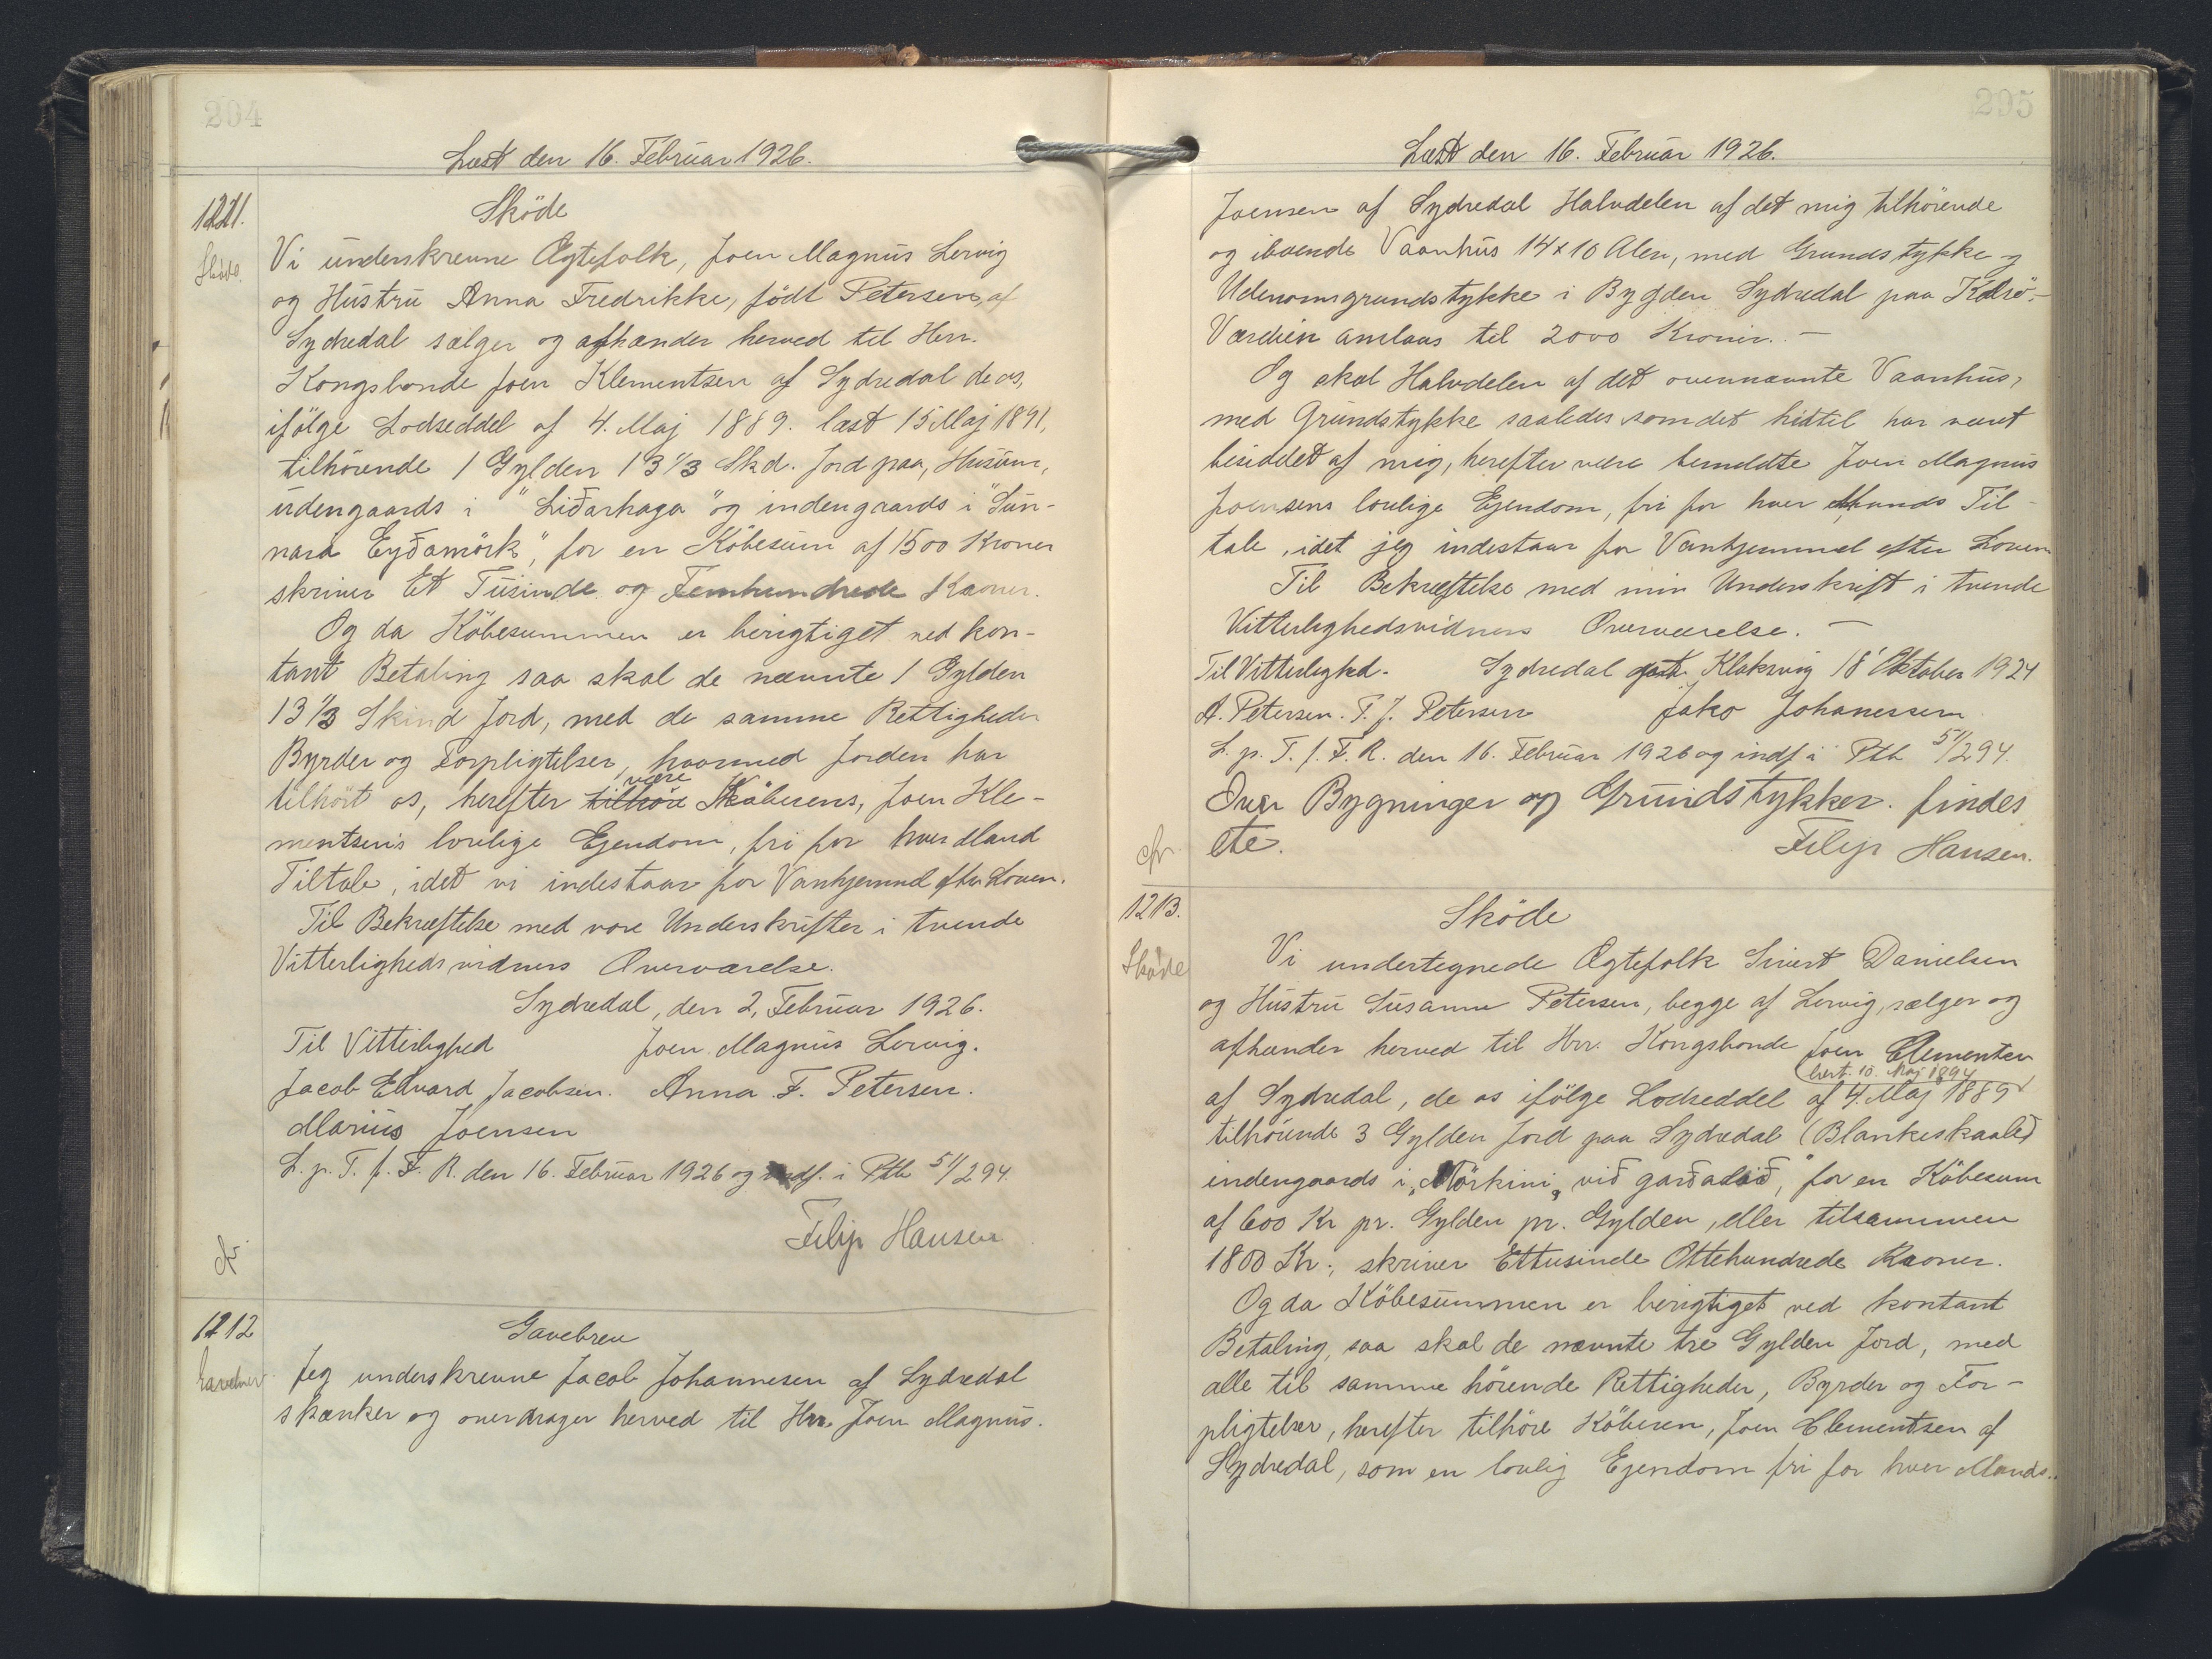 294
Læst den 16. Februar 1926.
1211.
Sköde
Sköde.
Vi underskrevne Ægtefolk, Joen Magnus Lervig
og Hustru Anna Fredrikke, födt Petersen, af
Sydredal sælger og afhænder herved til Herr.
Kongsbonde Joen Klementsen af Sydredal de os,
ifölge Lodseddel af 4. Maj 1889. læst 15 Maj 1891,
tilhörende 1 Gylden 13 1/3 Skd. Jord paa, Husum,
udengaards i "Liðarhaga" og indengaards i "Sun-
nara Eyðamörk", for en Köbesum af 1500 Kroner
skriver Et Tusinde og Femhundrede Kroner.
Og da Köbesummen er berigtiget ved kon-
tant Betaling saa skal de nævnte 1 Gylden
13 1/3 Skind Jord, med de samme Rettigheder
Byrder og Forpligtelser, hvormed Jorden har
tilhört os, herefter tilhöre være Köberens, Joen Kle-
mentsens lovlige Ejendom, fri for hver Mand
Tiltale, idet vi indestaar for Vanhjemmel efter Loven.
Til Bekræftelse med vore Underskrifter i tvende
Vitterlighedsvidners Overværelse.
Sydredal, den 2, Februar 1926.
Til Vitterlighed Joen Magnus Lervig.
Jacob Edvard Jacobsen. Anna F. Petersen.
Marius Joensen
L. p. T. f. F. R. den 16. Februar 1926 og indf. i Ptb 51/294.
Filip Hansen
cfr.
1212
Gavebrev
Gavebrev
Jeg underskrevne Jacob Johannesen af Sydredal
skænker og overdrager herved til Hr. Joen Magnus.
295
Læst den 16. Februar 1926.
Joensen af Sydredal Halvdelen af det mig tilhörende
og iboende Vaanhus 14 x 10 Alen, med Grundstykke og
Udenomsgrundstykke i Bygden Sydredal paa Kalsö.-
Værdien anslaas til 2000 Kroner. -
Og skal Halvdelen af det ovennævnte Vaanhus,
med Grundstykke saaledes som det hidtil har været
besiddet af mig, herefter være bemeldte Joen Magnus
Joensens lovlige Ejendom, fri for hver Mands Til-
tale, idet jeg indestaar for Vanhjemmel efter Loven
Til Bekræftelse med min Underskrift i tvende
Vitterlighedsvidners Overværelse. -
Til Vitterlighed. Sydredal Klaksvig 18' Oktober 1924
A. Petersen. T. J. Petersen Jako Johanessen
L. p. T. f. F. R. den 16. Februar 1926 og indf i Ptb 51/294.
Over Bygninger og Grundstykker. findes
cfr. ete. Filip Hansen.
1213.
Sköde
Sköde
Vi undertegnede Ægtefolk Sivert Danielsen
og Hustru Susanne Petersen, begge af Lervig, sælger og
afhænder herved til Hrr. Kongsbonde Joen Clementsen
læst. 10. Maj 1894
af Sydredal, de os ifölge Lodseddel af 4. Maj 1889
tilhörende 3 Gylden Jord paa Sydredal (Blankeskaale)
indengaards i "Mörkini" við garðalið," for en Köbesum
af 600 Kr pr. Gylden pr. Gylden, eller tilsammen
1800 Kr., skriver Ettusinde Ottehundrede Kroner.
Og da Köbesummen er berigtiget ved kontant
Betaling, saa skal de nævnte tre Gylden Jord, med
alle til samme hörende Rettigheder, Byrder og For-
pligtelser, herefter tilhöre Köberen, Joen Clementsen af
Sydredal, som en lovlig Ejendom fri for hver Mands.